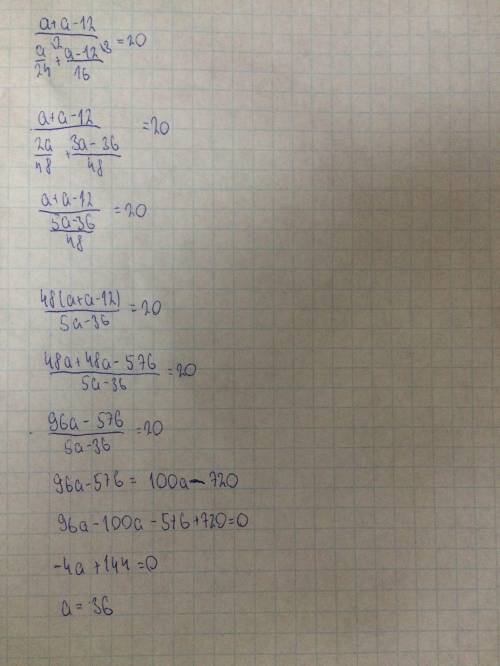 (a+a-12)/(a/24 ² + (a-12)/16 ³) = 20
(a+a-12)/(2a/48 + (3a-36)/48) = 20
(a+a-12)/((5a-36)/48) = 20
48(a+a-12)/(5a-36) = 20
(48a+48a-576)/(5a-36) = 20
(96a-576)/(5a-36) = 20
96a-576 = 100a-720
96a-100a-576+720=0
-4a+144=0
a=36